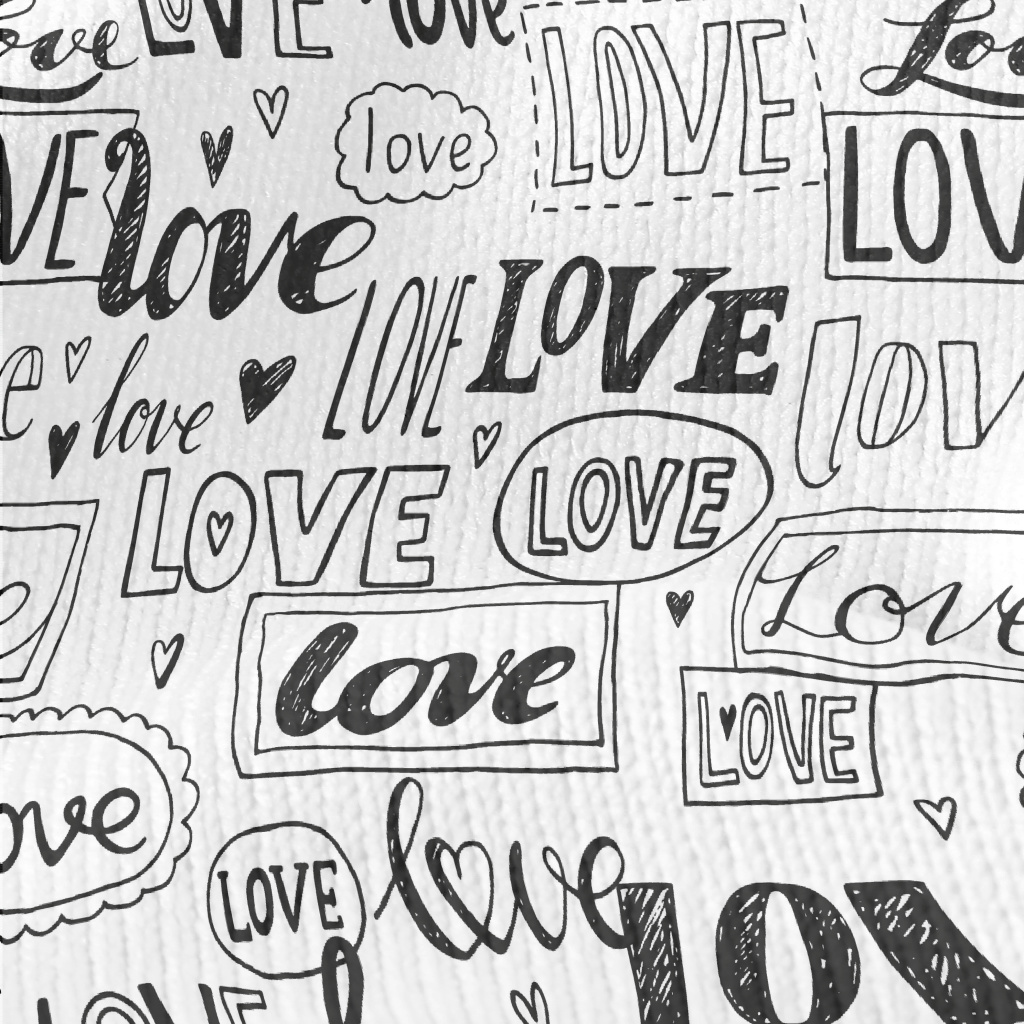 ove
LOVE
love
LOVE
Lov
love
VE
LOV
love
LOVE
LOVE
lov
e
love
LOVE
LOVE
e
Love
love
LOVE
ove
LOVE
love
LOV
LOVE